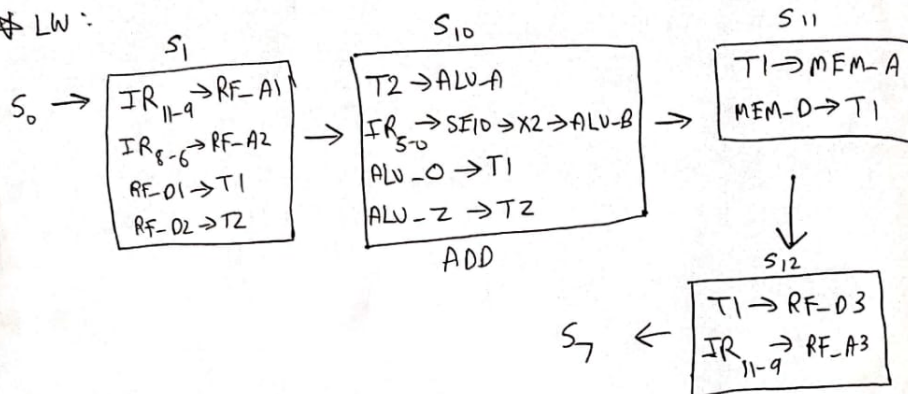 LW:
S1
S0 → IR11-9 → RF_A1
IR8-6 → RF_A2
RF_D1 → T1
RF_D2 → T2
S10
T2 → ALU_A
IR5-0 → SE10 → X2 → ALU_B
ALU_O → T1
ALU_Z → T2
ADD
S11
T1 → MEM_A
MEM_D → T1
S12
T1 → RF_D3
IR11-9 → RF_A3
S7